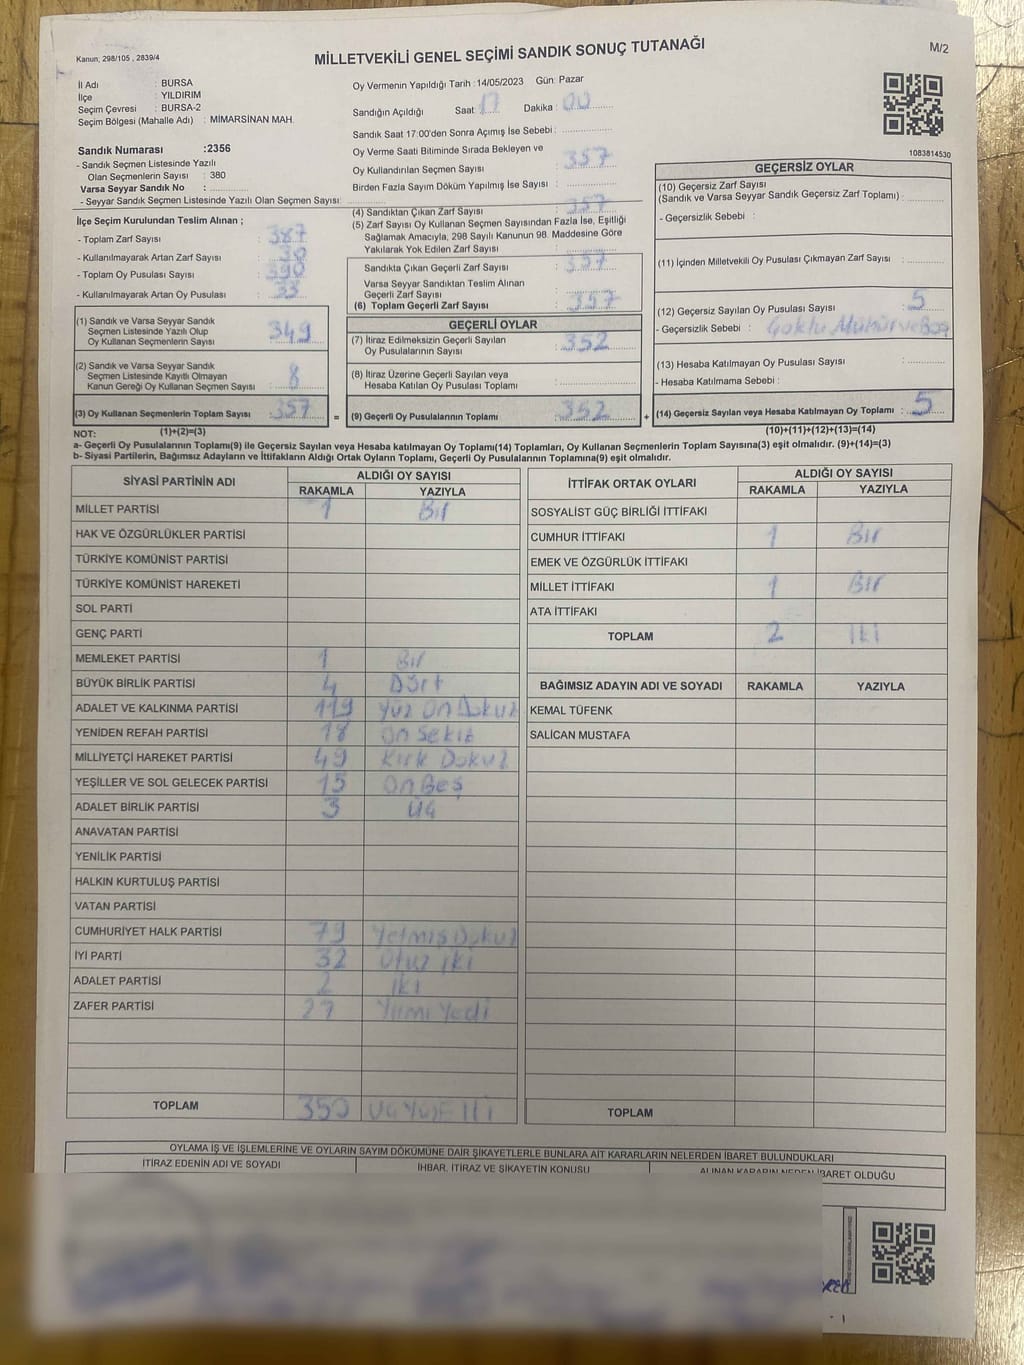 Kanun, 298/105 , 2839/4
MİLLETVEKİLİ GENEL SEÇİMİ SANDIK SONUÇ TUTANAĞI
M/2
İl Adı : BURSA
İlçe : YILDIRIM
Seçim Çevresi : BURSA-2
Seçim Bölgesi (Mahalle Adı) : MİMARSİNAN MAH.
Oy Vermenin Yapıldığı Tarih : 14/05/2023 Gün: Pazar
Sandığın Açıldığı Saat : 17 Dakika : 00
Sandık Saat 17:00'den Sonra Açımış İse Sebebi :
Sandık Numarası : 2356
- Sandık Seçmen Listesinde Yazılı
Olan Seçmenlerin Sayısı : 380
Varsa Seyyar Sandık No :
- Seyyar Sandık Seçmen Listesinde Yazılı Olan Seçmen Sayısı :
Oy Verme Saati Bitiminde Sırada Bekleyen ve
Oy Kullandırılan Seçmen Sayısı : 357
Birden Fazla Sayım Döküm Yapılmış İse Sayısı :
1083814530
İlçe Seçim Kurulundan Teslim Alınan ;
- Toplam Zarf Sayısı : 387
- Kullanılmayarak Artan Zarf Sayısı : 30
- Toplam Oy Pusulası Sayısı : 390
- Kullanılmayarak Artan Oy Pusulası : 33
(1) Sandık ve Varsa Seyyar Sandık
Seçmen Listesinde Yazılı Olup
Oy Kullanan Seçmenlerin Sayısı : 349
(2) Sandık ve Varsa Seyyar Sandık
Seçmen Listesinde Kayıtlı Olmayan
Kanun Gereği Oy Kullanan Seçmen Sayısı : 8
(3) Oy Kullanan Seçmenlerin Toplam Sayısı : 357
(1)+(2)=(3)
(4) Sandıktan Çıkan Zarf Sayısı : 357
(5) Zarf Sayısı Oy Kullanan Seçmen Sayısından Fazla İse, Eşitliği
Sağlamak Amacıyla, 298 Sayılı Kanunun 98. Maddesine Göre
Yakılarak Yok Edilen Zarf Sayısı :
Sandıkta Çıkan Geçerli Zarf Sayısı : 357
Varsa Seyyar Sandıktan Teslim Alınan
Geçerli Zarf Sayısı :
(6) Toplam Geçerli Zarf Sayısı : 357
GEÇERLİ OYLAR
(7) İtiraz Edilmeksizin Geçerli Sayılan
Oy Pusulalarının Sayısı : 352
(8) İtiraz Üzerine Geçerli Sayılan veya
Hesaba Katılan Oy Pusulası Toplamı :
= (9) Geçerli Oy Pusulalarının Toplamı : 352
GEÇERSİZ OYLAR
(10) Geçersiz Zarf Sayısı
(Sandık ve Varsa Seyyar Sandık Geçersiz Zarf Toplamı) :
- Geçersizlik Sebebi :
(11) İçinden Milletvekili Oy Pusulası Çıkmayan Zarf Sayısı :
(12) Geçersiz Sayılan Oy Pusulası Sayısı : 5
- Geçersizlik Sebebi :
(13) Hesaba Katılmayan Oy Pusulası Sayısı :
- Hesaba Katılmama Sebebi :
+ (14) Geçersiz Sayılan veya Hesaba Katılmayan Oy Toplamı : 5
(10)+(11)+(12)+(13)=(14)
NOT:
a- Geçerli Oy Pusulalarının Toplamı(9) ile Geçersiz Sayılan veya Hesaba katılmayan Oy Toplamı(14) Toplamları, Oy Kullanan Seçmenlerin Toplam Sayısına(3) eşit olmalıdır. (9)+(14)=(3)
b- Siyasi Partilerin, Bağımsız Adayların ve İttifakların Aldığı Ortak Oyların Toplamı, Geçerli Oy Pusulalarının Toplamına(9) eşit olmalıdır.
SİYASİ PARTİNİN ADI ALDIĞI OY SAYISI
RAKAMLA YAZIYLA
MİLLET PARTİSİ 1 Bir
HAK VE ÖZGÜRLÜKLER PARTİSİ
TÜRKİYE KOMÜNİST PARTİSİ
TÜRKİYE KOMÜNİST HAREKETİ
SOL PARTİ
GENÇ PARTİ
MEMLEKET PARTİSİ 1 Bir
BÜYÜK BİRLİK PARTİSİ 4 Dört
ADALET VE KALKINMA PARTİSİ 119 Yüz On Dokuz
YENİDEN REFAH PARTİSİ 18 On Sekiz
MİLLİYETÇİ HAREKET PARTİSİ 49 Kırk Dokuz
YEŞİLLER VE SOL GELECEK PARTİSİ 15 On Beş
ADALET BİRLİK PARTİSİ 3 Üç
ANAVATAN PARTİSİ
YENİLİK PARTİSİ
HALKIN KURTULUŞ PARTİSİ
VATAN PARTİSİ
CUMHURİYET HALK PARTİSİ 79 Yetmiş Dokuz
İYİ PARTİ 32 Otuz iki
ADALET PARTİSİ 2 İki
ZAFER PARTİSİ 27 Yirmi Yedi
TOPLAM 350
İTTİFAK ORTAK OYLARI ALDIĞI OY SAYISI
RAKAMLA YAZIYLA
SOSYALİST GÜÇ BİRLİĞİ İTTİFAKI
CUMHUR İTTİFAKI 1 Bir
EMEK VE ÖZGÜRLÜK İTTİFAKI
MİLLET İTTİFAKI 1 Bir
ATA İTTİFAKI
TOPLAM 2 İki
BAĞIMSIZ ADAYIN ADI VE SOYADI RAKAMLA YAZIYLA
KEMAL TÜFENK
SALİCAN MUSTAFA
TOPLAM
OYLAMA İŞ VE İŞLEMLERİNE VE OYLARIN SAYIM DÖKÜMÜNE DAİR ŞİKAYETLERLE BUNLARA AİT KARARLARIN NELERDEN İBARET BULUNDUKLARI
İTİRAZ EDENİN ADI VE SOYADI İHBAR, İTİRAZ VE ŞİKAYETİN KONUSU ALINAN KARARIN NEDEN İBARET OLDUĞU